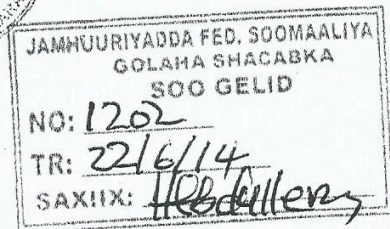 JAMHUURIYADDA FED. SOOMAALIYA
GOLAHA SHACABKA
SOO GELID
NO: 1202
TR: 22/6/14
SAXIIX: